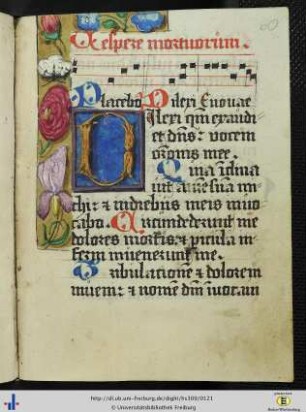 60
Vespere mortuorum.
Placebo Dilexi Euouae
Dilexi qm exaudi
et dns: vocem
oronis mee.
Quia iclina
uit aurē suā mi
chi: & in diebus meis inuo
cabo. Circumdederunt me
dolores mortis: & picula in
ferni inuenerunt me.
Tribulationē & dolorem
inueni: & nomē dni inuocaui
http://dl.ub.uni-freiburg.de/diglit/hs300/0121
© Universitätsbibliothek Freiburg